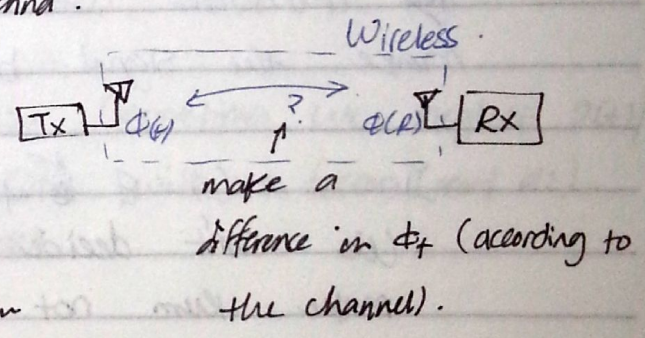 Wireless.
Tx Φ(t) ? Φ(R) Rx
make a
difference in Φt (according to
the channel).